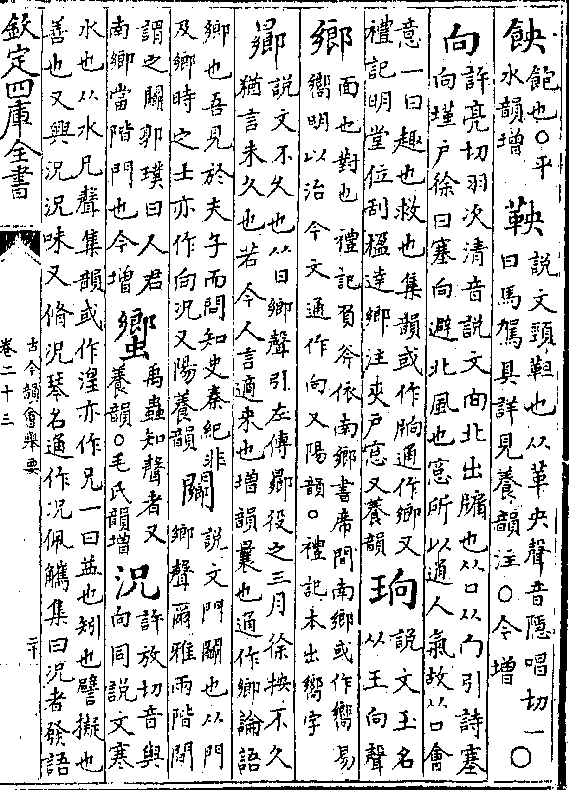 䬬飽也○平水韻增 鞅說文頸靼也从革央聲音隱唱切一曰馬駕具詳見養韻注○今增○
向許亮切羽次清音說文向北出牖也从口从冂引詩塞向墐户徐曰塞向避北風也窻所以通人氣故从口會
意一曰趣也救也集韻或作晌通作鄉又禮記明堂位刮楹達鄉注夾戸窻又養韻 珦說文玉名从王向聲
鄉面也對也禮記負斧依南鄉書席間南鄉或作嚮易嚮明以治今文通作向又陽韻○禮記本出嚮字
曏說文不久也从日鄉聲引左傳曏役之三月徐按不久猶言未久也若今人言適來也增韻曩也通作鄉論語
鄉也吾見於夫子而問知史秦紀非及鄉時之士亦作向況又陽養韻 闀說文門闀也从門鄉聲爾雅兩階間
謂之闀郭璞曰人君南鄉當階門也今增 蠁禹蟲知聲者又養韻○毛氏韻增 況許放切音與向同說文寒
水也从水兄聲集韻或作湟亦作兄一曰益也矧也譬擬也
善也又興況況味又脩況琴名通作況佩觿集曰況者發語
欽定四庫全書
古今韻會舉要
卷二十三
二十